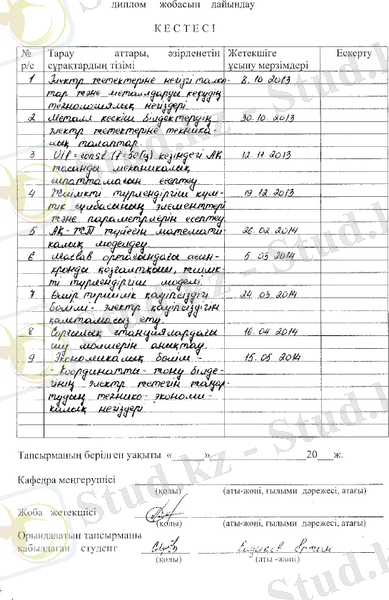 диплом жобасын дайындау
К Е С Т Е С І
№ р/с
Тарау аттары, әзірленетін сұрақтардың тізімі
Жетекшіге ұсыну мерзімдері
Ескерту
1 Электр жетектеріне негізгі талаптар және металлдарды кесудің технологиялық негіздері. 8.10.2013
2 Металл кескіш білдектердің электр жетектеріне техникалық талаптар. 30.10.2013
3 U/f-const (f=50Гц) кезіндегі АҚ тасынды механикалық сипаттамасын есептеу. 12.11.2013
4 Жиілікті түрлендіргіш күштік сұлбасының элементтері және параметрлерін есептеу. 19.12.2013
5 АҚ-ЖТ түйесін математикалық модельдеу. 26.02.2014
6 Матлав ортасындағы асинхронды қозғалтқыш, жиілікті түрлендіргіш моделі. 5.03.2014
7 Өмір тіршілік қауіпсіздігі бөлімі- электр қауіпсіздігін қамтамасыз ету. 24.03.2014
8 станциялардағы шу мәлімерін анықтау. 16.04.2014
9 Экономикалық бөлім -
- Координатты-жону білдегінің электр жетегін таңдаудың технико-экономикалық негіздері. 15.05.2014
Тапсырманың берілген уақыты «______»____________________20___ж.
Кафедра меңгерушісі
(қолы) (аты-жөні, ғылыми дәрежесі, атағы)
Жоба жетекшісі
(қолы) (аты-жөні, ғылыми дәрежесі, атағы)
Орындалатын тапсырманы
қабылдаған студент
(қолы) (аты -жөні)
Stud.kz - Stud.kz